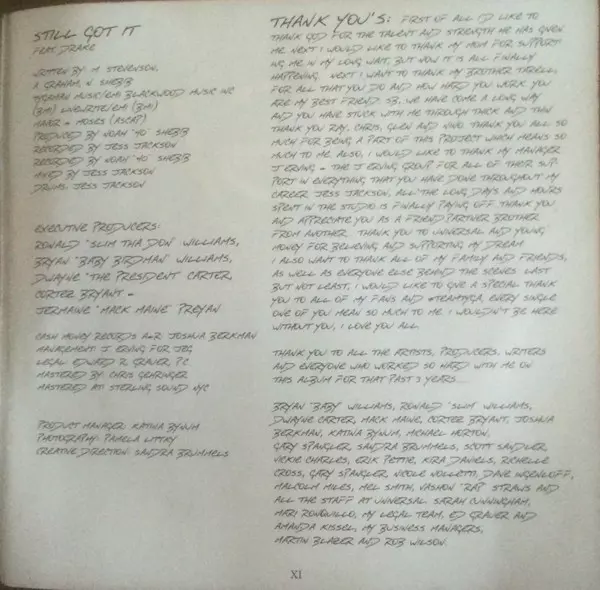 STILL GOT IT
FEAT. DRAKE
WRITTEN BY: M. STEVENSON,
A. GRAHAM, N. SHEBIB
TYGAMAN MUSIC/EMI BLACKWOOD MUSIC INC
(BMI) LIVEWRITE/EMI (BMI)
MAVOR & MOSES (ASCAP)
PRODUCED BY NOAH "40" SHEBIB
RECORDED BY JESS JACKSON
RECORDED BY NOAH "40" SHEBIB
MIXED BY JESS JACKSON
DRUMS: JESS JACKSON
EXECUTIVE PRODUCERS:
RONALD "SLIM THA DON" WILLIAMS,
BRYAN "BABY BIRDMAN" WILLIAMS,
DWAYNE "THE PRESIDENT" CARTER,
CORTEZ BRYANT &
JERMAINE "MACK MAINE" PREYAN
CASH MONEY RECORDS A&R: JOSHUA BERKMAN
MANAGEMENT: J. ERVING FOR JEG,
LEGAL: EDWARD R. GRAUER, P.C.
MASTERED BY: CHRIS GEHRINGER
MASTERED AT: STERLING SOUND NYC
PRODUCT MANAGER: KATINA BYNUM
PHOTOGRAPHY: PAMELA LITTKY
CREATIVE DIRECTION: SANDRA BRUMMELS
THANK YOU'S: FIRST OF ALL I'D LIKE TO
THANK GOD FOR THE TALENT AND STRENGTH HE HAS GIVEN
ME. NEXT I WOULD LIKE TO THANK MY MOM FOR SUPPORT-
ING ME IN MY LONG WAIT, BUT NOW IT IS ALL FINALLY
HAPPENING. NEXT I WANT TO THANK MY BROTHER TARELL,
FOR ALL THAT YOU DO AND HOW HARD YOU WORK. YOU
ARE MY BEST FRIEND. SB, WE HAVE COME A LONG WAY
AND YOU HAVE STUCK WITH ME THROUGH THICK AND THIN
THANK YOU RAY, CHRIS, GLEN AND NINO. THANK YOU ALL SO
MUCH FOR BEING A PART OF THIS PROJECT WHICH MEANS SO
MUCH TO ME. ALSO, I WOULD LIKE TO THANK MY MANAGER
J ERVING & THE J ERVING GROUP FOR ALL OF THEIR SUP-
PORT IN EVERYTHING THAT YOU HAVE DONE THROUGHOUT MY
CAREER. JESS JACKSON, ALL THE LONG DAYS AND HOURS
SPENT IN THE STUDIO IS FINALLY PAYING OFF. THANK YOU
AND APPRECIATE YOU AS A FRIEND PARTNER BROTHER
FROM ANOTHER. THANK YOU TO UNIVERSAL AND YOUNG
MONEY FOR BELIEVING AND SUPPORTING MY DREAM.
I ALSO WANT TO THANK ALL OF MY FAMILY AND FRIENDS,
AS WELL AS EVERYONE ELSE BEHIND THE SCENES. LAST
BUT NOT LEAST, I WOULD LIKE TO GIVE A SPECIAL THANK
YOU TO ALL OF MY FANS AND #TEAMTYGA, EVERY SINGLE
ONE OF YOU MEAN SO MUCH TO ME. I WOULDN'T BE HERE
WITHOUT YOU, I LOVE YOU ALL.
THANK YOU TO ALL THE ARTISTS, PRODUCERS, WRITERS
AND EVERYONE WHO WORKED SO HARD WITH ME ON
THIS ALBUM FOR THAT PAST 3 YEARS....
BRYAN "BABY" WILLIAMS, RONALD "SLIM" WILLIAMS,
DWAYNE CARTER, MACK MAINE, CORTEZ BRYANT, JOSHUA
BERKMAN, KATINA BYNUM, MICHAEL HORTON,
GARY SPANGLER, SANDRA BRUMMELS, SCOTT SANDLER,
VICKIE CHARLES, ERIK PETTIE, KIRA DANIELS, RICHELLE
CROSS, GARY SPANGLER, NICOLE, DAVE
MALCOLM MILES, MEL SMITH, VASHON STRAWS AND
ALL THE STAFF AT UNIVERSAL. SARAH CUNNINGHAM,
MARI, MY LEGAL TEAM, ED GRAUER AND
AMANDA KISSEL, MY BUSINESS MANAGERS,
MARTIN BLABER AND ROB WILSON.
XI